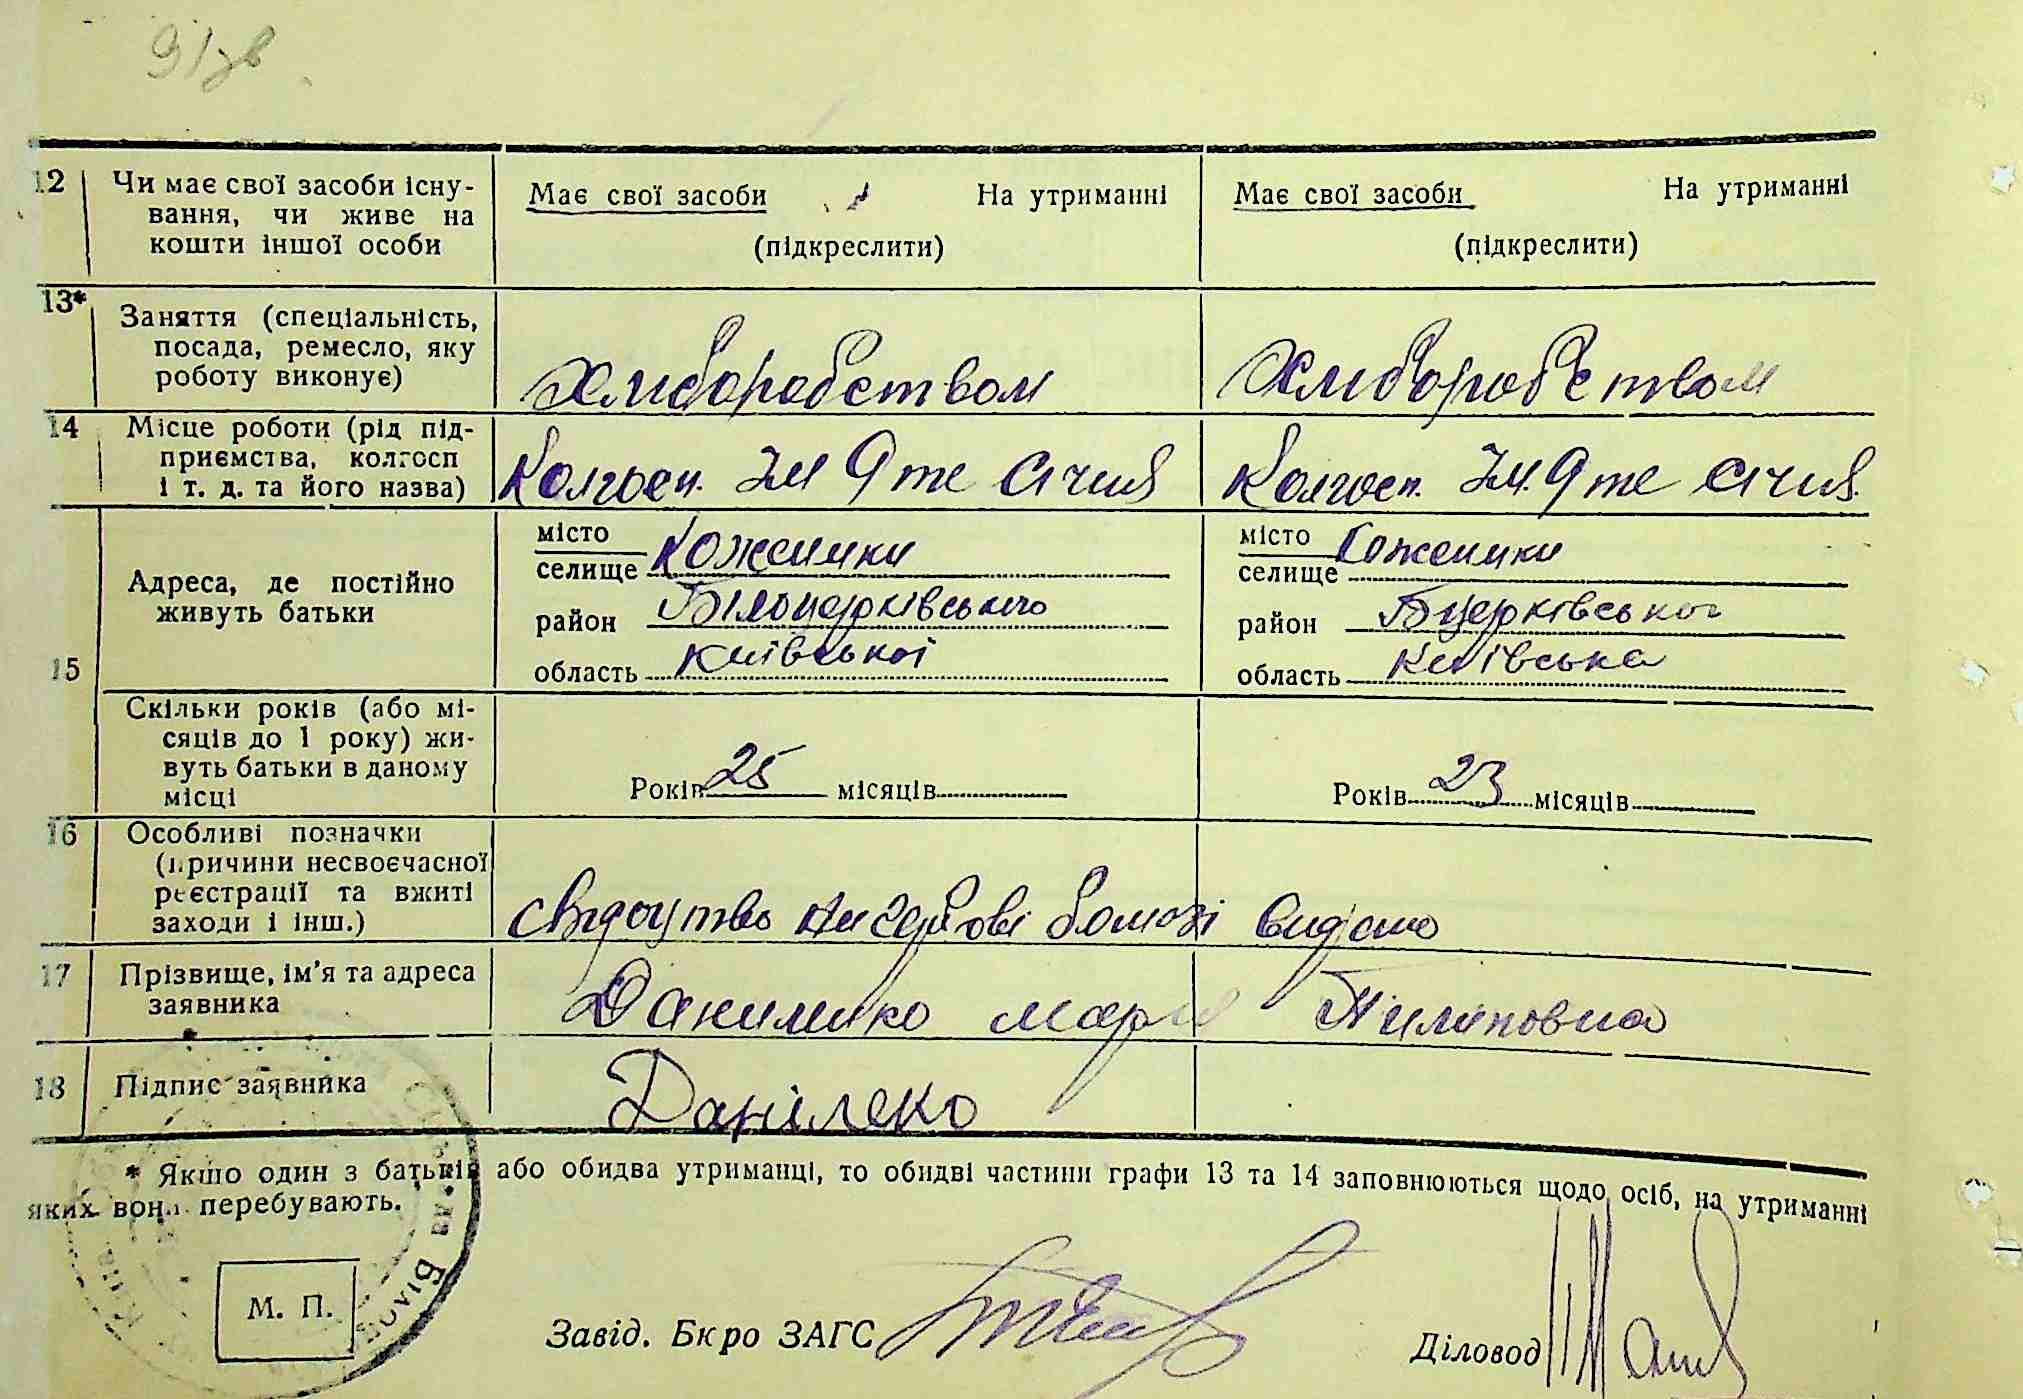 91зв
12 Чи має свої засоби існу- Має свої засоби На утриманні Має свої засоби На утриманні
вання, чи живе на
кошти іншої особи (підкреслити) (підкреслити)
13*
Заняття (спеціальність,
посада, ремесло, яку
роботу виконує) Хліборобством Хліборобством
14 Місце роботи (рід під-
приємства, колгосп
і т. д. та його назва) Колгосп. Ім 9 те Січня Колгосп. Ім. 9 те Січня.
15 Адреса, де постійно
живуть батьки
місто
селище Коженики місто
селище Коженики
район Білоцерківського район Бцерківської
область Київської область Київська
Скільки років (або мі-
сяців до 1 року) жи-
вуть батьки в даному
місці
Років 25 місяців Років 23 місяців
16 Особливі позначки
(причини несвоєчасної
реєстрації та вжиті
заходи і інш.) видано
17 Прізвище, ім'я та адреса
заявника Данилико Марія Пиліповна
18 Підпис заявника Данілеко
* Якщо один з батьків або обидва утриманці, то обидві частини графи 13 та 14 заповнюються щодо осіб, на утриманні
яких вони перебувають.
М. П.
Завід. Бюро ЗАГС Діловод